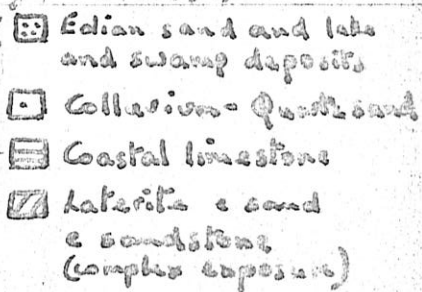 Eolian sand and lake
and swamp deposits
Colluvium - Quartz sand
Coastal limestone
Laterite e sand
e sandstone
(complex exposure)